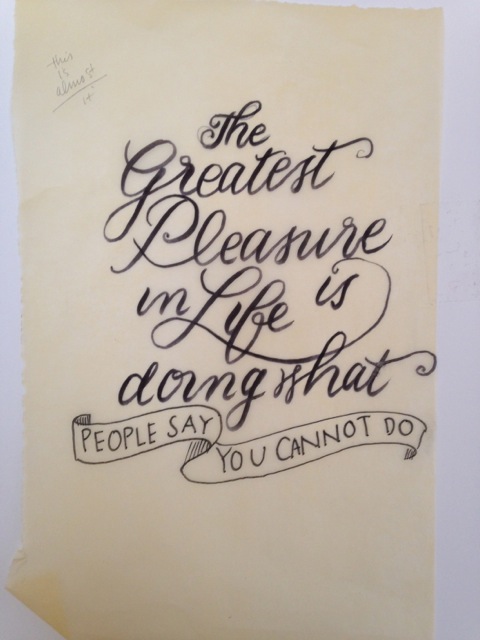 this
is
almost
it
The
Greatest
Pleasure
in Life is
doing what
PEOPLE SAY
YOU CANNOT DO